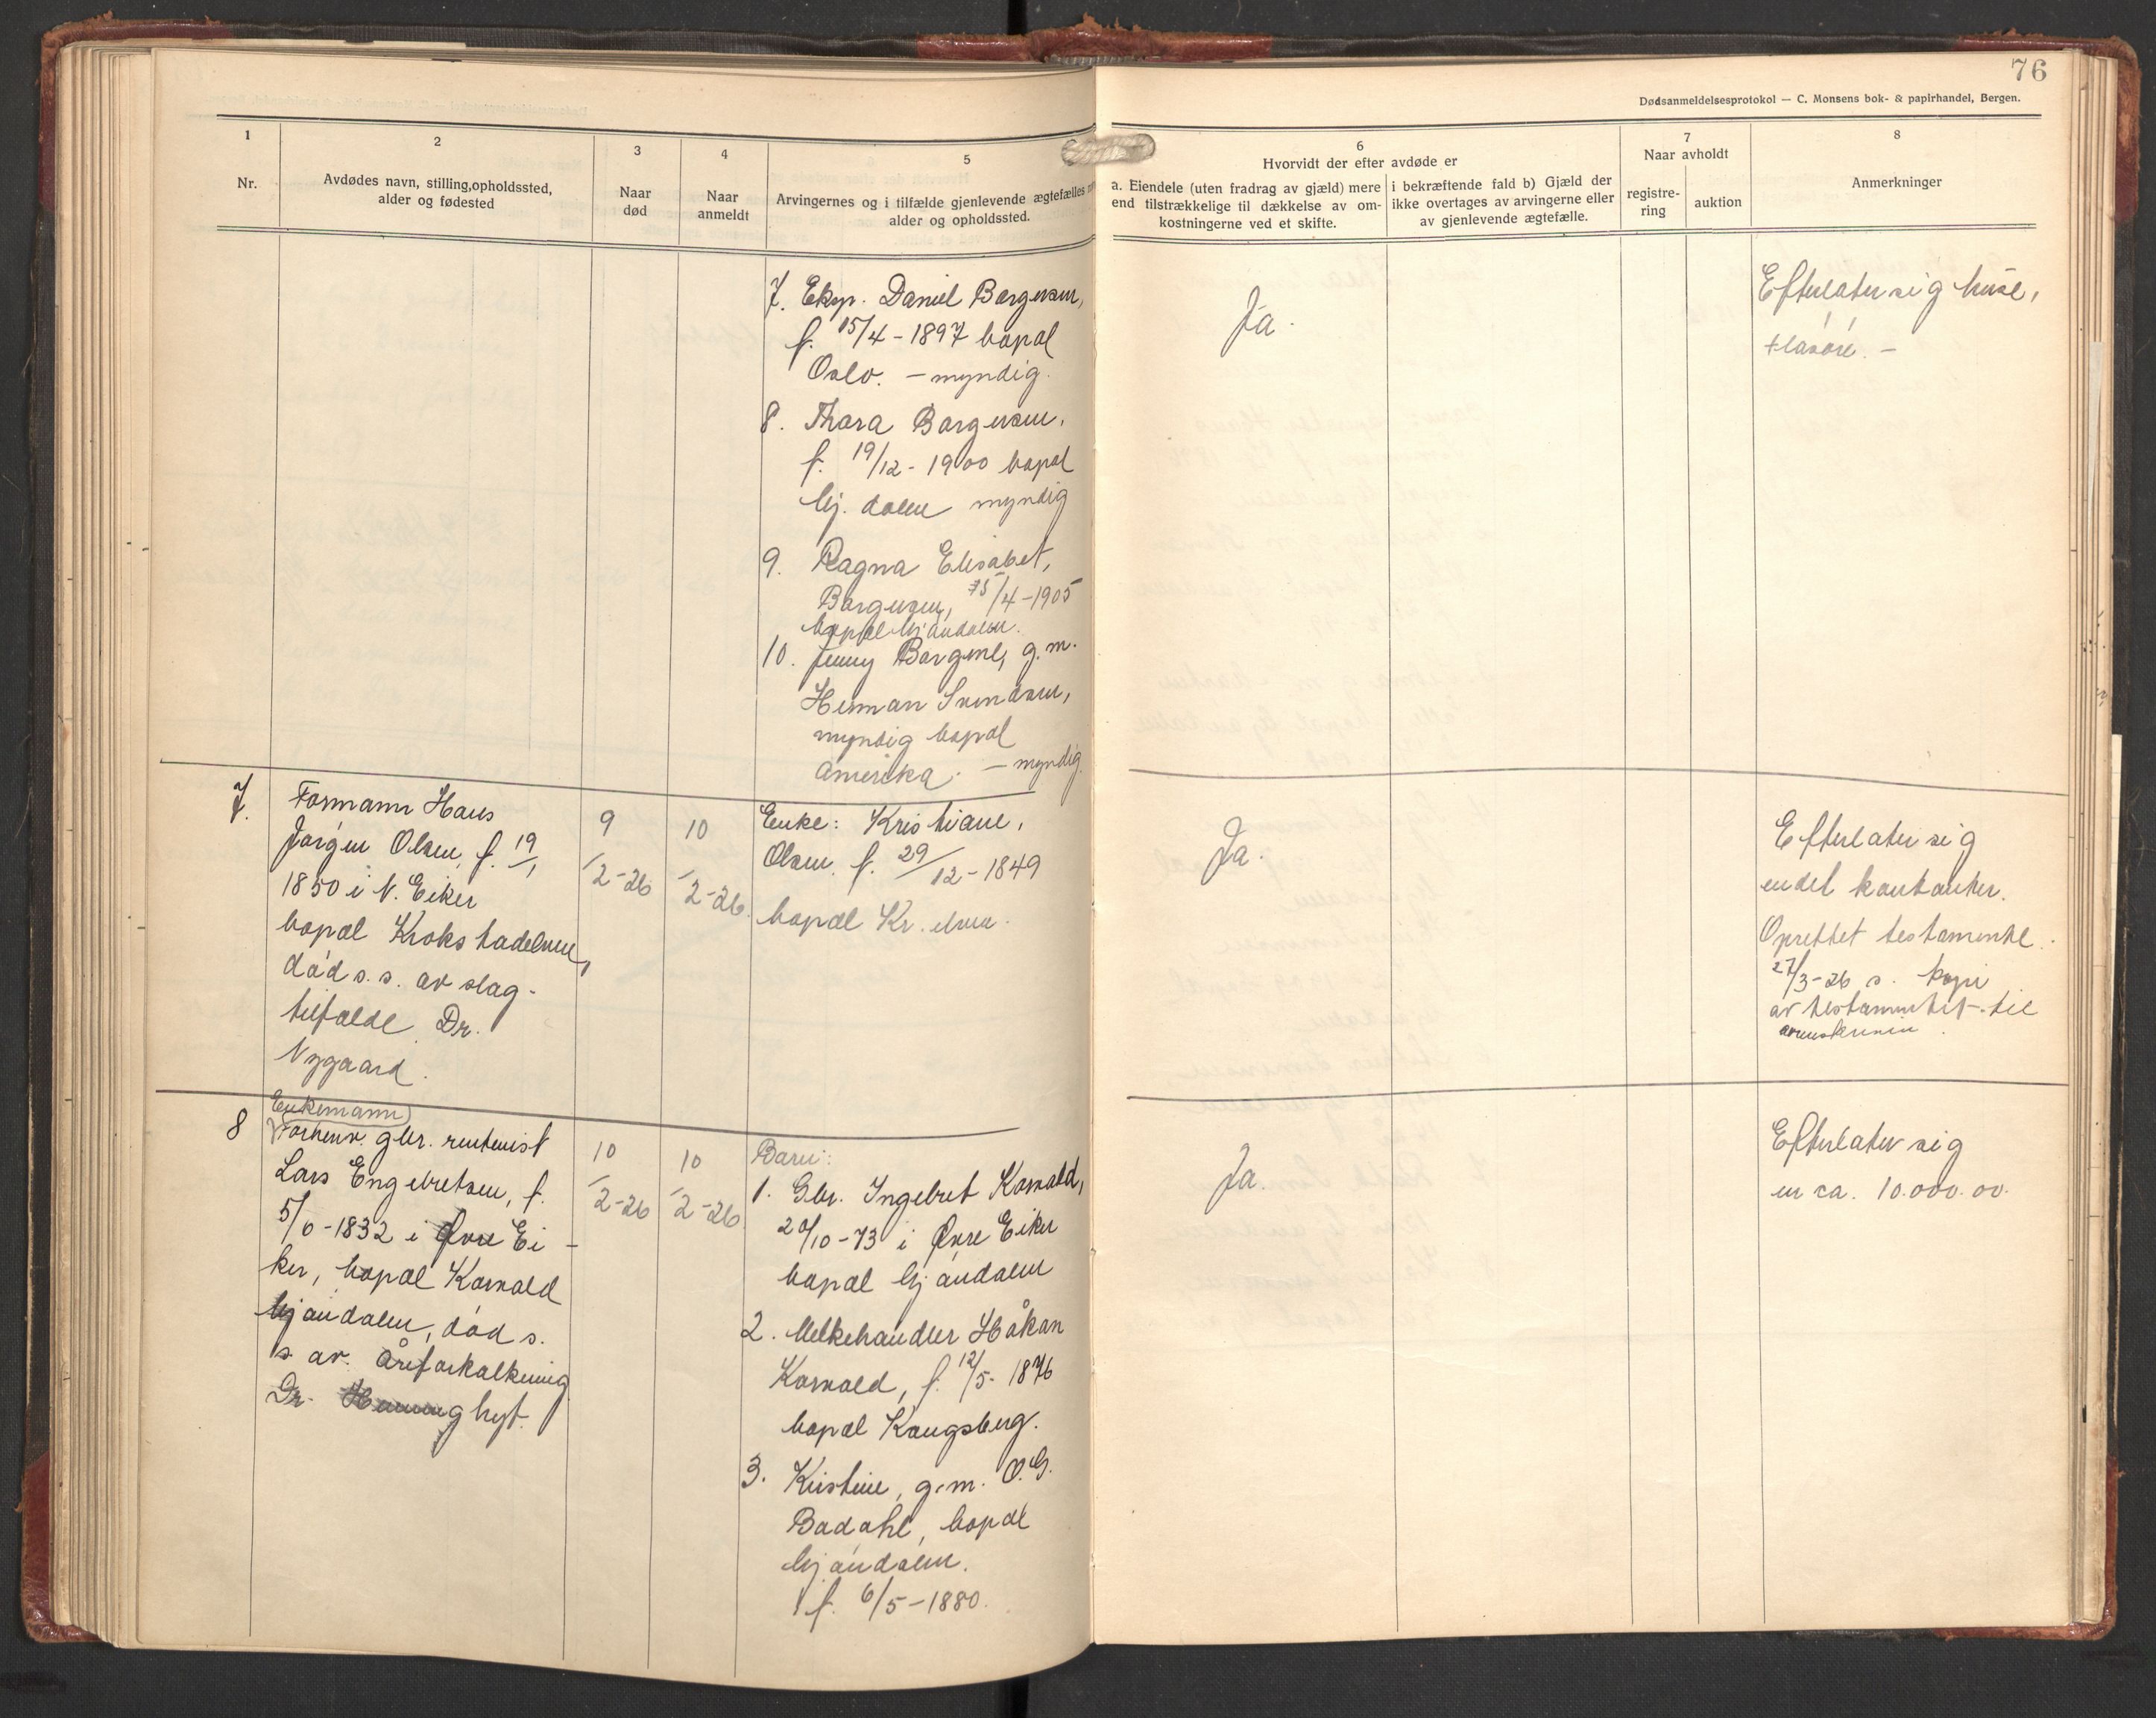 76
Dødsanmeldelsesprotokol — C. Monsens bok- & papirhandel, Bergen.
1
Nr.
2
Avdødes navn, stilling, opholdssted,
alder og fødested
3
Naar
død
4
Naar
anmeldt
5
Arvingernes og i tilfælde gjenlevende ægtefælles
alder og opholdssted.
6
Hvorvidt der efter avdøde er
a. Eiendele (uten fradrag av gjæld) mere
end tilstrækkelige til dækkelse av om-
kostningerne ved et skifte.
i bekræftende fald b) Gjæld der
ikke overtages av arvingerne eller
av gjenlevende ægtefælle.
7
Naar avholdt
registre-
ring
auktion
8
Anmerkninger
7. Eksp. Daniel Borgersen,
f. 15/4 - 1897 bopæl
Oslo. - myndig.
8. Thora Borgersen,
f. 19/12 - 1900 bopæl
Mj. dalen myndig
9. Ragna Elisabet,
Borgersen, 15/4 - 1905
bopæl Mjøndalen.
10. Jenny Borgens, g. m.
Herman Svendsen,
myndig bopæl
Amerika. - myndig.
Ja.
Efterlater sig huse,
+ løsøre. -
7.
Formann Hans
Jørgen Olsen, f. 19/1
1850 i N. Eiker
bopæl Krokstadelven,
død s. s. av slag-
tilfælde Dr.
Nygaard.
9
/2-26
10
/2-26.
Enke: Kristiane,
Olsen. f. 29/12 - 1849
bopæl Kr. elven.
Ja.
Efterlater sig
endel kontanter.
Oprettet testamente.
27/3-26 s. kopi
av testamentet til
8
Enkemann
Forhenv. gbr. rentenist
Lars Engebretsen, f.
5/6 - 1832 i Øvre Ei-
ker, bopæl Korvald
Mjøndalen, død s.
s. av. Åreforkalkning
Dr.
10
/2-26
10
/2-26
Barn:
1. Gbr. Ingebret Korvald,
20/10 - 73 i Øvre Eiker
bopæl Mjøndalen
2. Melkehandler Håkan
Korvald, f. 12/5 - 1876
bopæl Kongsberg.
3. Kristine, g. m. O. G.
Badahl, bopæl
Mjøndalen.
f. 6/5 - 1880.
Ja.
Efterlater sig
en ca. 10.000.00.